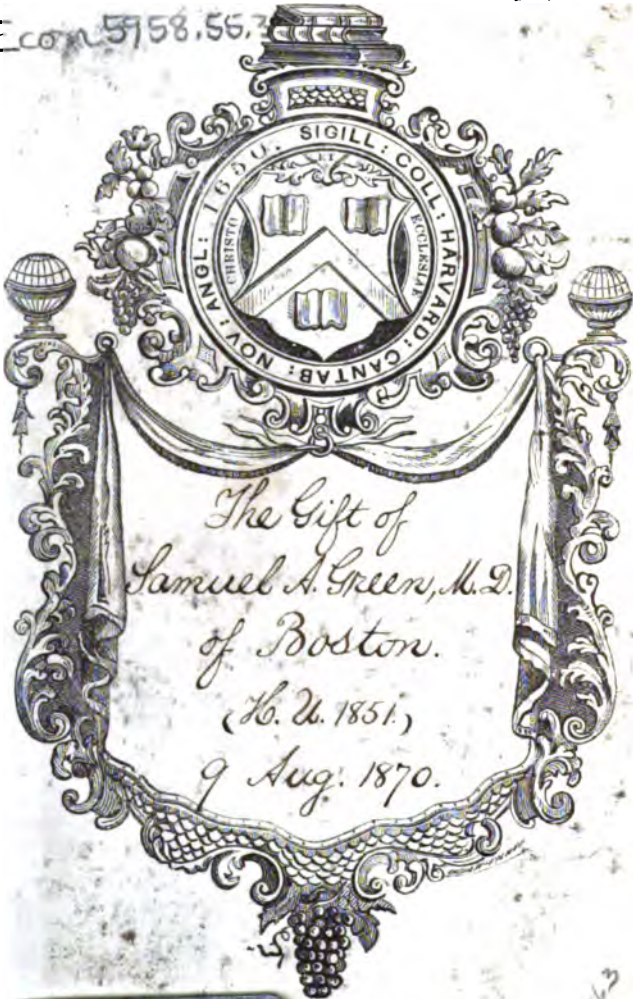 Econ 5958.55.3
SIGILL: COLL: HARVARD: CANTAB: NOV: ANGL: 1650.
CHRISTO ET ECCLESIAE
The Gift of
Samuel A. Green, M.D.
of Boston.
(H. U. 1851.)
9 Aug. 1870.